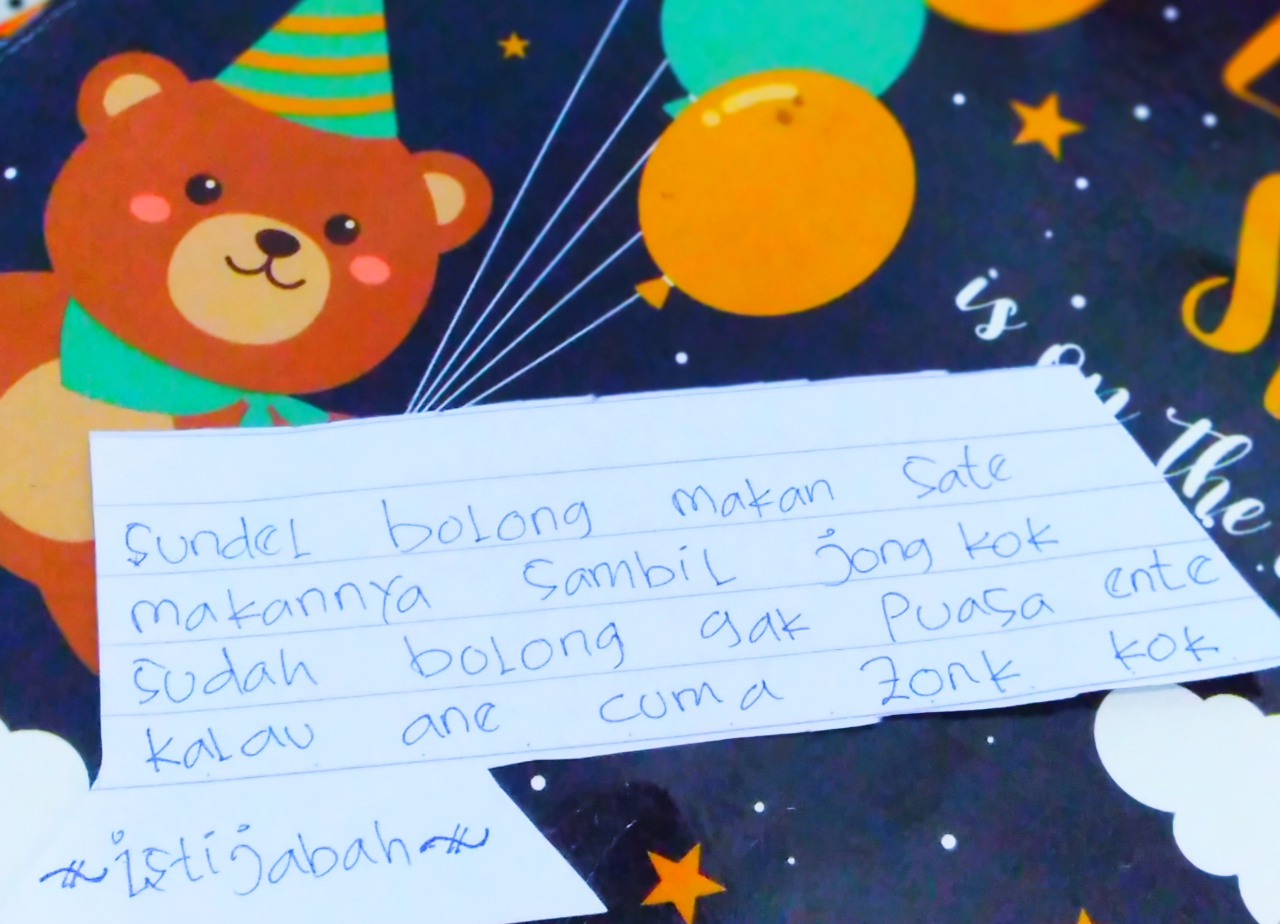 is
on
the
sundel bolong makan sate
makannya sambil jongkok
sudah bolong gak puasa ente
kalau ane cuma zonk kok
istijabah